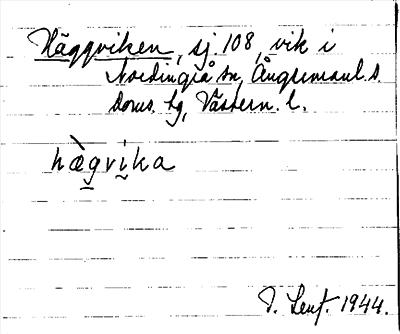 Häggviken, sj. 108, vik i
Nordingrå sn, Ångermanl. s.
doms. hg, Västern. l.
hæ̀gvika
1944.